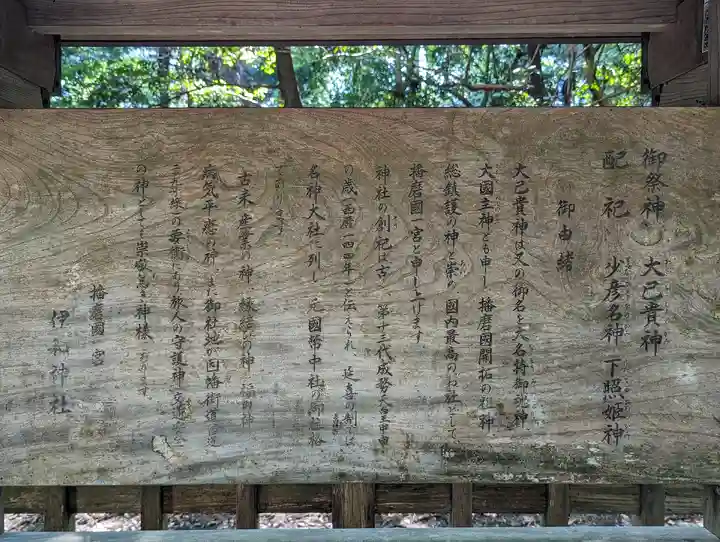 御祭神 大己貴神
配祀 少彦名神 下照姫神
御由緒
大己貴神は又の御名を大名持御魂神
大國主神とも申し 播磨國開拓の祖神
総鎮護の神と崇め 國内最高のお社として
播磨國一宮と申し上げます
神社の創祀は古く 第十三代成務天皇甲申
の歳(西暦一四四年)と伝えられ、延喜の制には
名神大社に列し 元國幣中社の御社格
であります
古来 産業の神 縁結びの神
病気平癒の神、また御社地が因幡街道
の要衝にあり旅人の守護神 交通安全
の神としても崇敬篤き神様であります
播磨國一宮
伊和神社